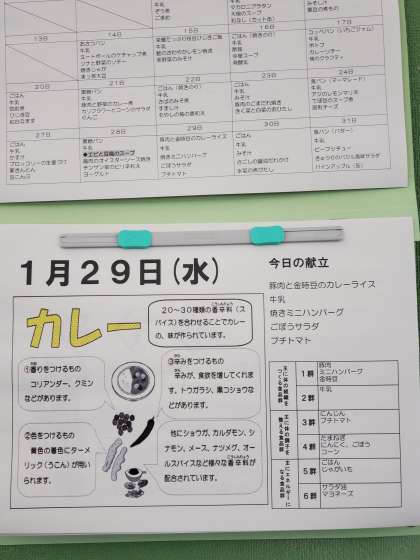 牛乳
ごまめ
マカロニグラタン
大根のスープ
みそ汁
13日
14日
15日
16日
17日
あさつパン
牛乳
ミートボールのケチャップ煮
ツナと野菜のソテー
牛乳
鮭のさわやかレモン焼き
ごはん（焼きのり）
牛乳
中華スープ
コッペパン（いちごジャム）
牛乳
ポトフ
カレーソテー
桃のクラフティ
20日
21日
22日
23日
24日
ごはん
牛乳
筑前煮
ひじき豆
紅白なます
黒糖パン
牛乳
豚肉と野菜のカレー煮
カリフラワーとコーンのサラダ
りんご
ごはん（焼きのり）
牛乳
さばのみそ煮
すまし汁
もやしの梅の香和え
ごはん
牛乳
みそ汁
豚肉のごまだれ焼き
きく菜と白菜のおひたし
食パン（マーマレード）
牛乳
てぼ豆のスープ煮
固形チーズ
27日
28日
29日
30日
31日
ごはん
牛乳
かす汁
ブロッコリーの生姜づけ
栗きんとん
豆こんぶ
黒糖パン
牛乳
◆エビと豆腐のスープ
鶏肉のオイスターソース焼き
チンゲン菜のピリ辛和え
ヨーグルト
豚肉と金時豆のカレーライス
牛乳
焼きミニハンバーグ
ごぼうサラダ
プチトマト
ごはん
牛乳
みそ汁
さごしの醤油だれかけ
水菜の煮びたし
食パン（バター）
牛乳
ビーフシチュー
きゅうりのバジル風味サラダ
パインアップル（缶）
1月29日(水)
カレー
20～30種類の香辛料（ス
パイス）を合わせることでカレー
の、味が作られています。
①香りをつけるもの
コリアンダー、クミン
などがあります。
③辛みをつけるもの
辛みが、食欲を増してくれま
す。トウガラシ、黒コショウな
どがあります。
②色をつけるもの
黄色の着色にターメ
リック（うこん）が用い
られます。
他にショウガ、カルダモン、シ
ナモン、メース、ナツメグ、オー
ルスパイスなど様々な香辛料が
配合されています。
今日の献立
豚肉と金時豆のカレーライス
牛乳
焼きミニハンバーグ
ごぼうサラダ
プチトマト
主に体の組織を
つくる食品群
1群
豚肉
ミニハンバーグ
金時豆
2群
牛乳
主に体の調子を
整える食品群
3群
にんじん
プチトマト
4群
たまねぎ
にんにく、ごぼう
コーン
主にエネルギーに
なる食品群
5群
ごはん
じゃがいも
6群
サラダ油
マヨネーズ